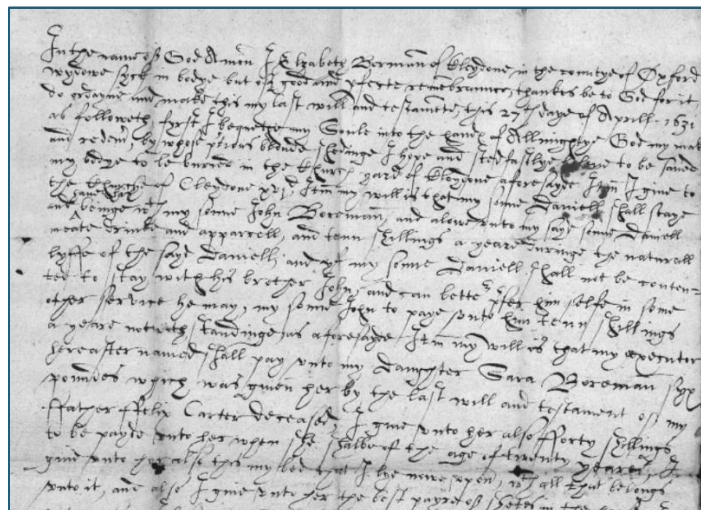 In the name of God Amen I Elizabeth Borman of Cleydone in the comitye of Oxford
wydowe syck in bodye but of good and pferte remembrannce, thankes be to God for it
do ordayne and make this my last will and testamete, this 27th daye of Aprill 1631
as followeth fyrst I bequethe my Soule into the hands of Allmightye God my mak
and redemr, by whose blonde I hope and stedfastlye to be saved
my bodye to be buried in the Church yard of Cleydone aforesayde Itm I give to
the Churche of Cleydone Itm my will is that my sonne Daniell shall staye
and beinge wth my sonne John Boreman, and alowe unto my saye sonne Daniell
meate drinke and apparrell, and tenn shillings a yeare duringe the naturall
lyffe of the saye Daniell, and yf my sonne Daniell shall not be conten-
ted to stay with his brother John, and can better pfer him selfe in some
other service he may, my sonne John to paye unto him tenn shillings
a yeare notwthstandinge as aforesayde Itm my will is that my executer
hereafter named shall pay unto my daughter Sara Boreman syx
poundes which was given her by the last will and testament of my
ffather ffelix Carter deceased, I give unto her also fforty shillings
to be payde unto her when she shalbe of the age of twenty yeares, I
give unto her also this my bed that I lye nowe upon, wth all that belongs
unto it, and also I give unto her the best payre of shetes in the